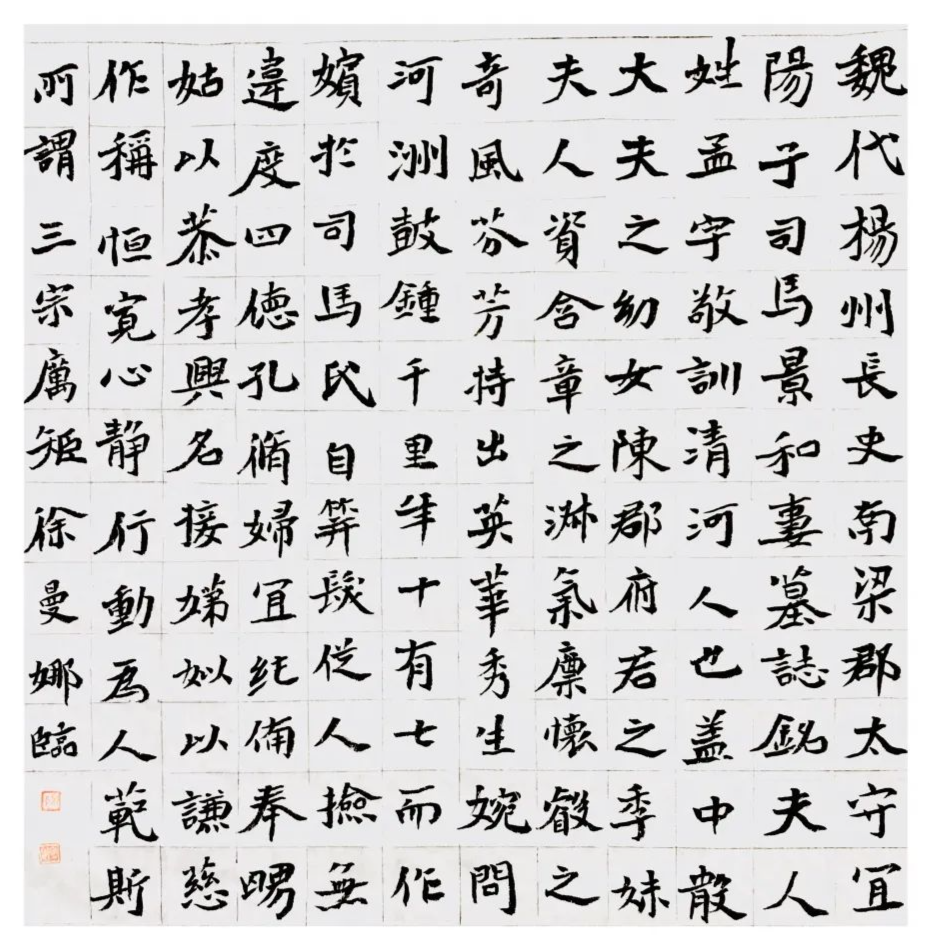 魏代楊州長史南梁郡太守宜
陽子司馬景和妻墓誌銘夫人
姓孟字敬訓清河人也盖中散
大夫之幼女陳郡府君之季妹
夫人資含章之淋氣稟懷叡之
奇風芬芳特出英華秀生婉問
河洲鼓鍾千里年十有七而作
嬪於司馬氏自笄髮從人撿無
違度四德孔脩婦宜純備奉舅
姑以恭孝興名接娣姒以謙慈
作稱恒寬心静行動為人範斯
所謂三宗厲矩徐曼娜臨